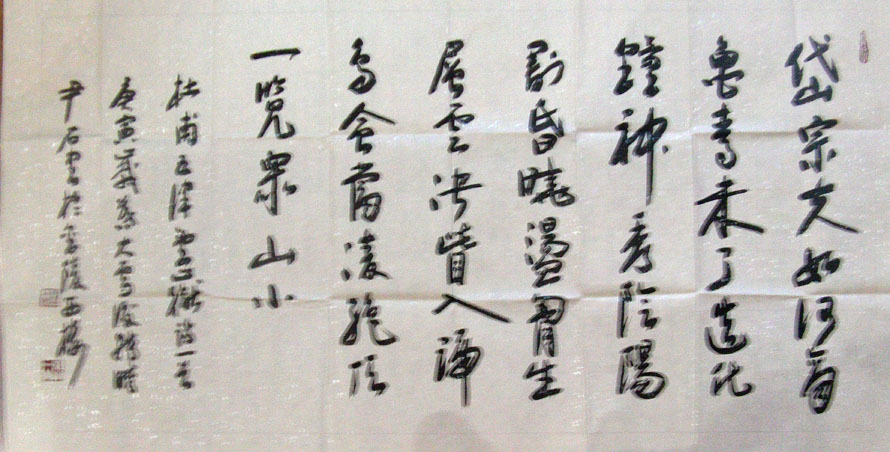 岱宗夫如何齊
魯青未了造化
鍾神秀陰陽
割昏曉盪胷生
層雲決眥入歸
鳥會當凌絕頂
一覽眾山小
杜甫五律望嶽詩一首
庚寅歲暮大雪後
尹石於金陵西樓